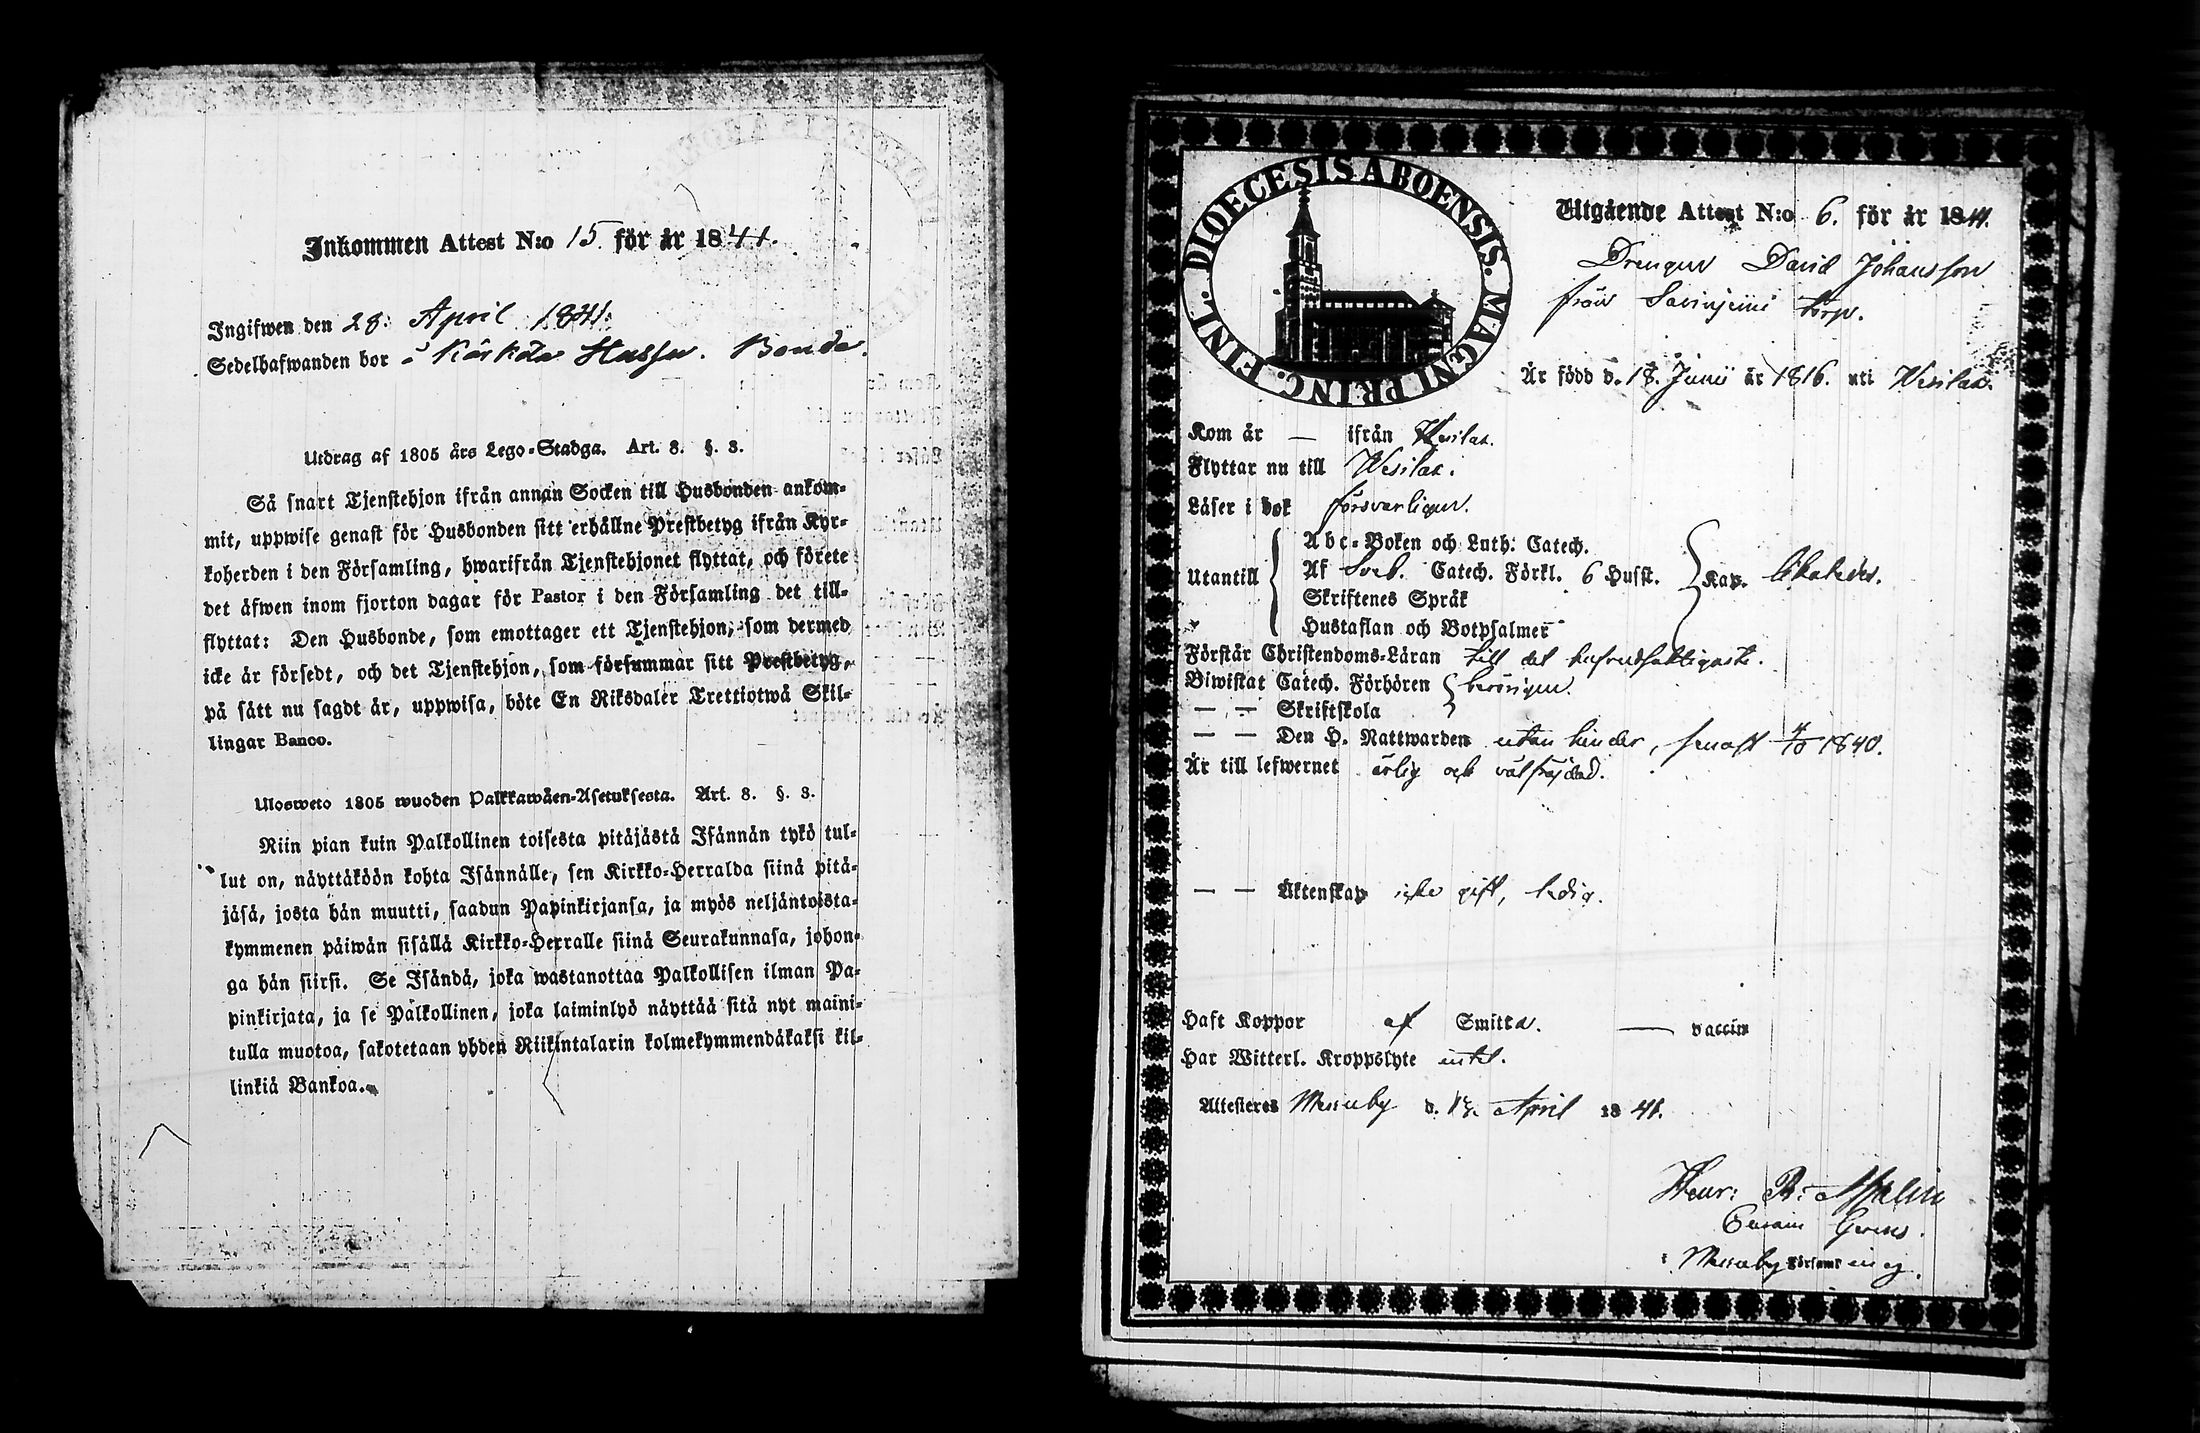 Inkommen Attest N:o 15. för år 1841.
Ingifwen den 28. April 1841.
Sedelhafwanden bor i Kärkälä Bonde.
Utdrag af 1805 års Lego-Stadga. Art. 8. §. 3.
Så snart Tjenstehjon ifrån annan Socken till Husbonden ankom-
mit, uppwise genast för Husbonden sitt erhållne Prestbetyg ifrån Kyr-
koherden i den Församling, hwarifrån Tjenstehjonet flyttat, och förete
det äfwen inom fjorton dagar för Pastor i den Församling det till-
flyttat: Den Husbonde, som emottager ett Tjenstehjon, som dermed
icke är försedt, och det Tjenstehjon, som försummar sitt Prestbetyg,
på sätt nu sagdt är, uppwisa, böte En Riksdaler Trettiotwå Skil-
lingar Banco.
Ulosweto 1805 wuoden Palkkawäen-Asetuksesta. Art. 8. §. 3.
Niin pian kuin Palkollinen toisesta pitäjästä Isännän tykö tul-
lut on, näyttäköön kohta Isännälle, sen Kirkko-Herralda siinä pitä-
jäsä, josta hän muutti, saadun Papinkirjansa, ja myös neljäntoista-
kymmenen päiwän sisällä Kirkko-Herralle siinä Seurakunnasa, johon-
ga hän siirsi. Se Isändä, joka wastanottaa Palkollisen ilman Pa-
pinkirjata, ja se Palkollinen, joka laiminlyö näyttää sitä nyt maini-
tulla muotoa, sakotetaan yhden Riikintalarin kolmekymmendäkaksi kil-
linkiä Bankoa.
DIOECESIS ABOENSIS. MAGNI PRINC. FINL.
Utgående Attest N:o 6. för år 1841.
Drengen David Johansson
från Savinjemi torp.
Är född d. 18. Junii år 1816. uti Wesilax.
Kom år — ifrån Wesilax.
Flyttar nu till Wesilax.
Läser i bok försvarligen.
Utantill
Abc-Boken och Luth: Catech.
Af Sveb. Catech. Förkl. 6 Husst. Kap.
Skriftenes Språk
Hustaflan och Botpsalmer
Förstår Christendoms-Läran till det
Biwistat Catech. Förhören
— — Skriftskola
— — Den H. Nattwarden utan hinder, senast 4/10 1840.
Är till lefwernet ärlig och välfräjdad.
— — Äktenskap icke gift, ledig.
Haft Koppor af Smitta. — vaccin
Har Witterl. Kroppslyte intet.
Attesteres Messuby d. 13. April 1841.
Henr: R: Malin
Messuby Församling.